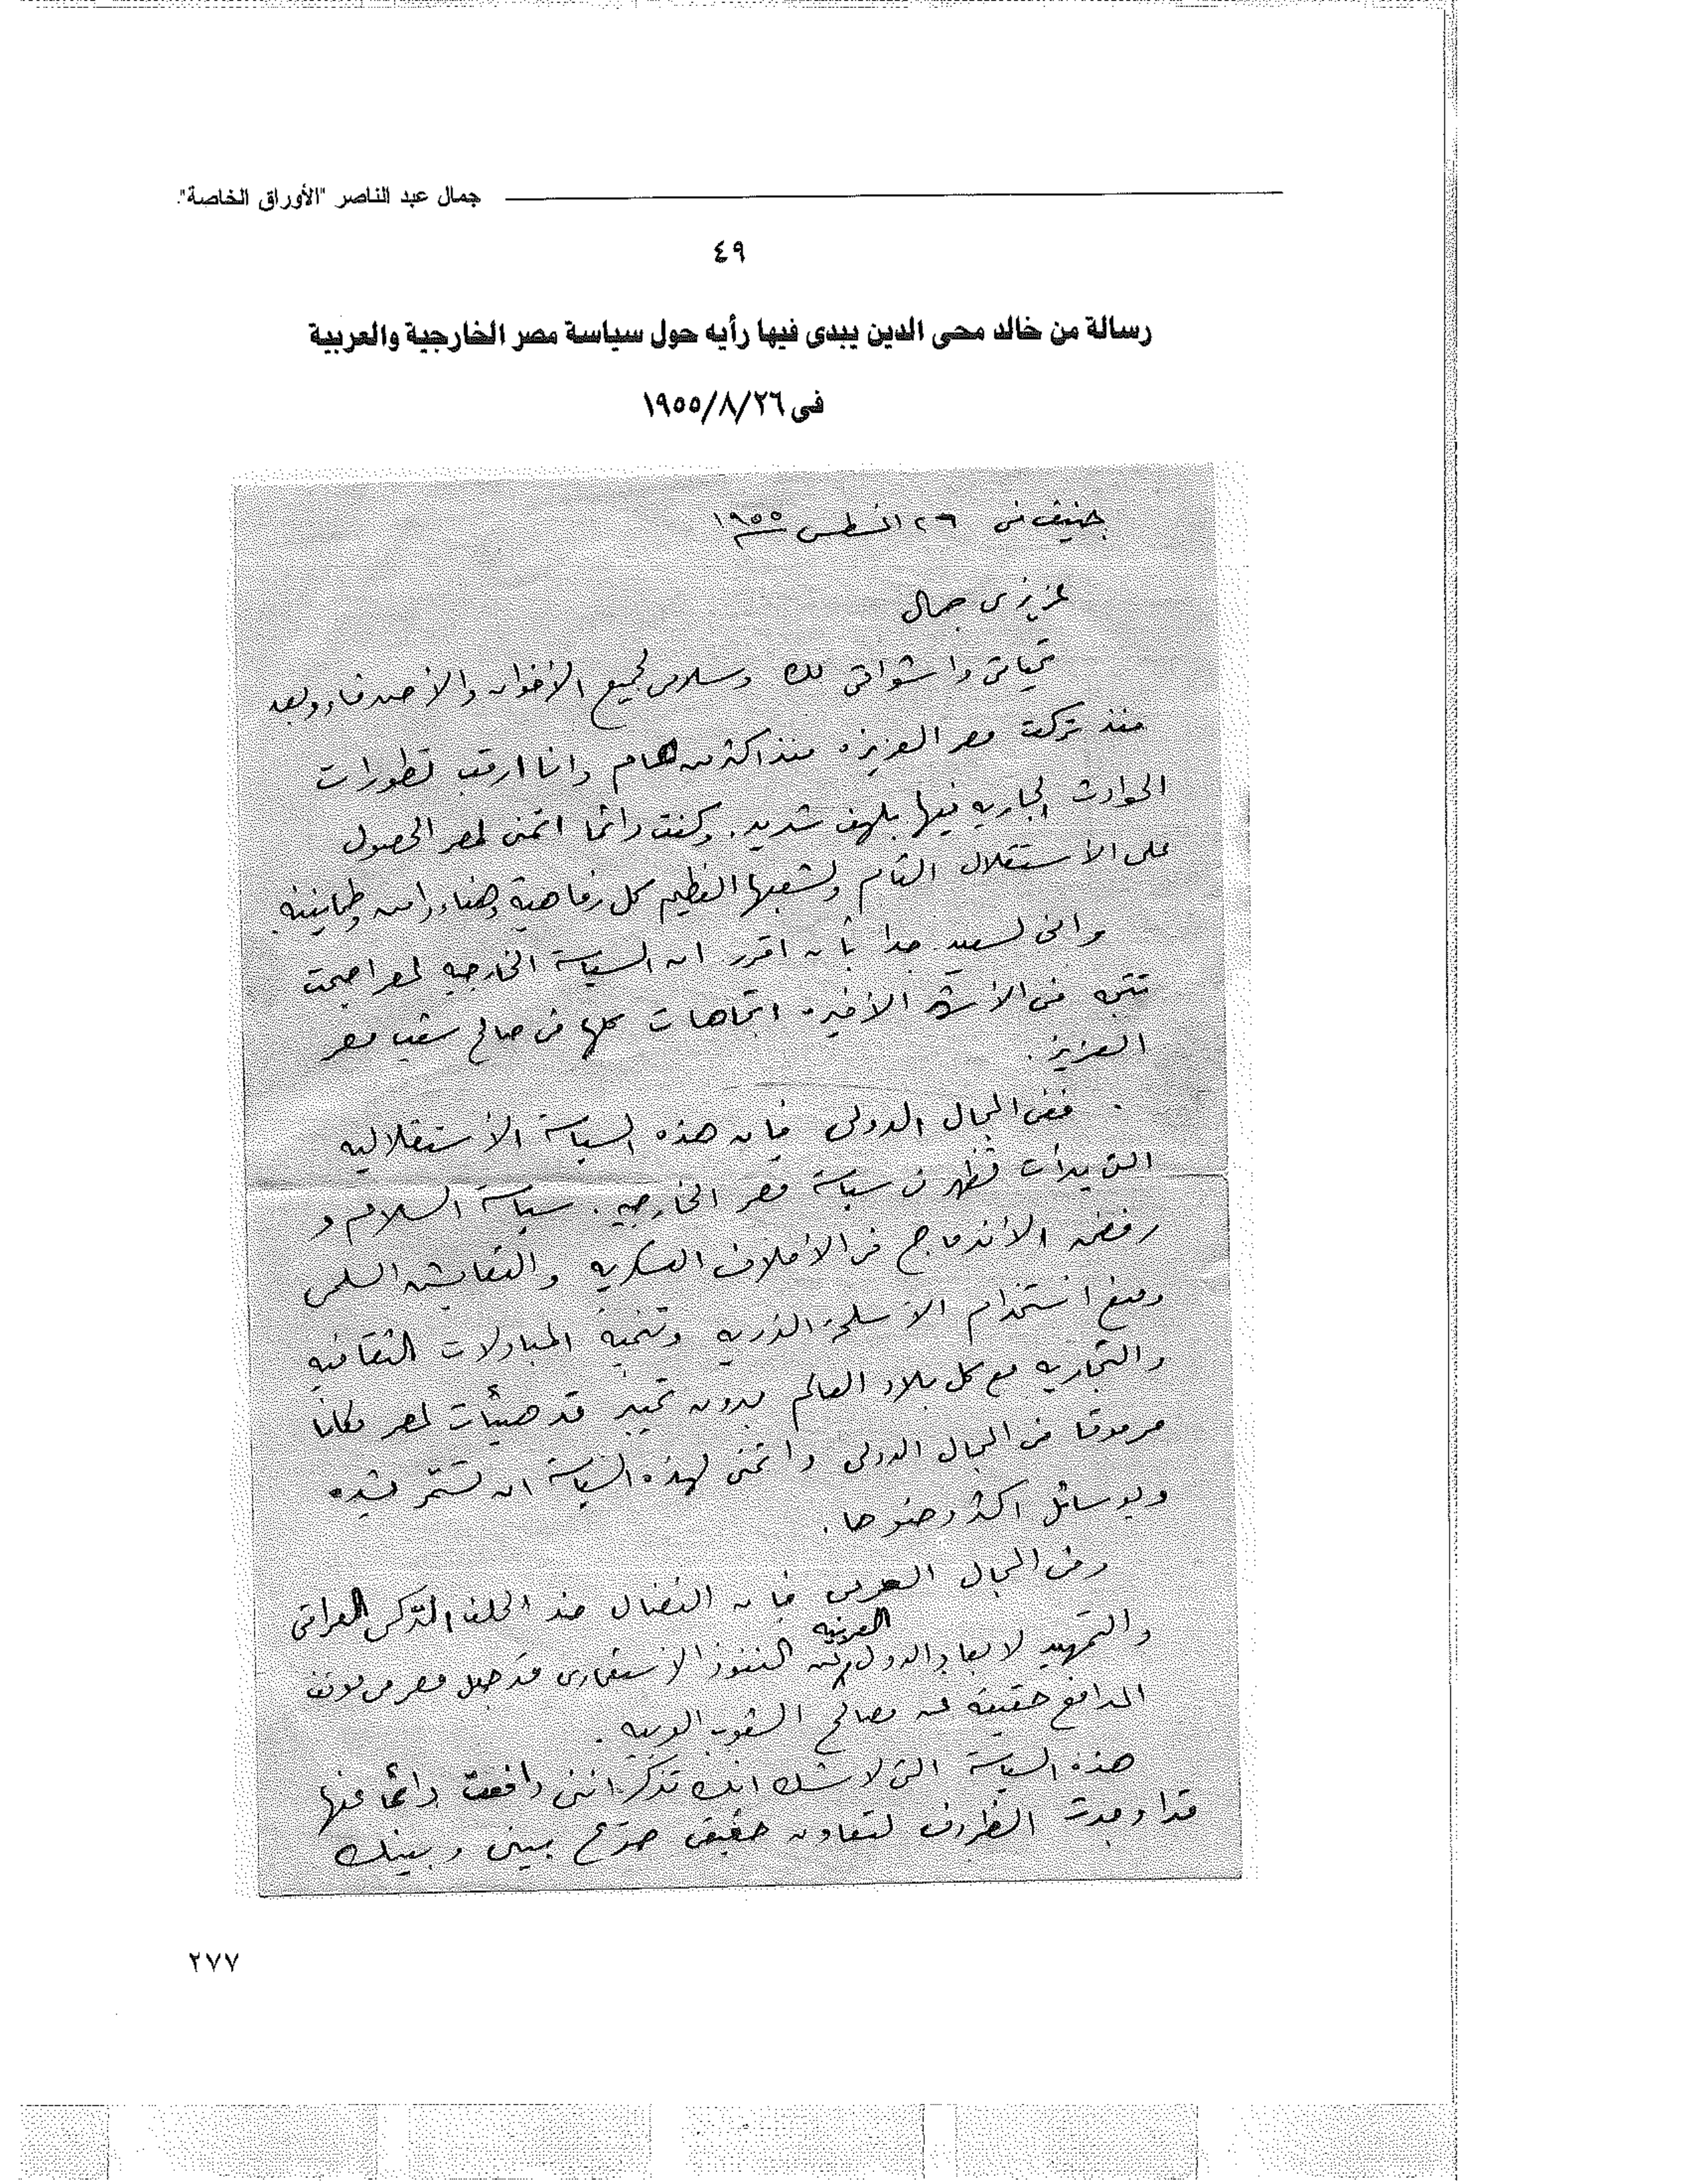 جمال عبد الناصر "الأوراق الخاصة".
٤٩
رسالة من خالد محى الدين يبدى فيها رأيه حول سياسة مصر الخارجية والعربية
فى ١٩٥٥/٨/٢٦
جنيف فى ٢٦ اغسطس ١٩٥٥
عزيزى جمال
تحياتى واشواقى لك وسلامى لجميع الأخوان والأصدقاء وبعد
منذ تركت مصر العزيزه منذ اكثر من عام وانا ارقب تطورات
الحوادث الجاريه فيها بلهف شديد. وكنت دائما اتمنى لمصر الحصول
على الأستقلال التام ولشعبها العظيم كل رفاهية وهناء وامن وطمأنينه.
وانى لسعيد جدا بأن اقرر ان السياسة الخارجيه لمصر اصبحت
تتجه فى الأشهر الأخيره اتجاهات كلها فى صالح شعب مصر
العزيز.
ففى المجال الدولى فإن هذه السياسة الأستقلاليه
التى بدأت تظهر فى سياسة مصر الخارجيه. سياسة السلام و
رفض الأندماج فى الأحلاف العسكريه والتعايش السلمى
ومنع استخدام الاسلحة الذريه وتنمية المبادلات الثقافيه
والتجاريه مع كل بلاد العالم بدون تحيز قد هيأت لمصر مكانا
مرموقا فى المجال الدولى واتمنى لهذه السياسة ان تستمر بشده
وبوسائل اكثر وضوحا.
وفى المجال العربى فإن النضال ضد الحلف التركى العراقى
والتمهيد لابعاد الدول العربيه عن النفوذ الاستعمارى قد جعل مصر فى موقف
المدافع حقيقة عن مصالح الشعوب العربيه.
هذه السياسة التى لاشك انك تذكر اننى دافعت دائما عنها
قد اوجدت الظروف لتعاون حقيقى صريح بينى وبينك
٢٧٧